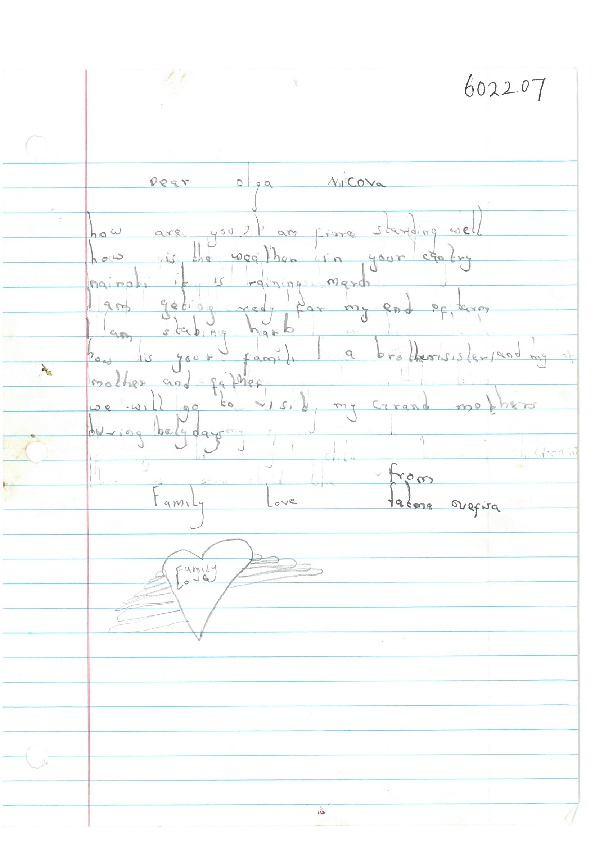 602207
Dear olga Nicova
how are you? I am fine standing well
how is the weather in your cootry
nairobi it is raining march
I am geting redy for my end of, tarm
I am stading harb
how is your famili I a brother/sister/and my
mother and father,
we will go to visit, my Grand mothers
during holydays
from
Family love fatma
Family
Love